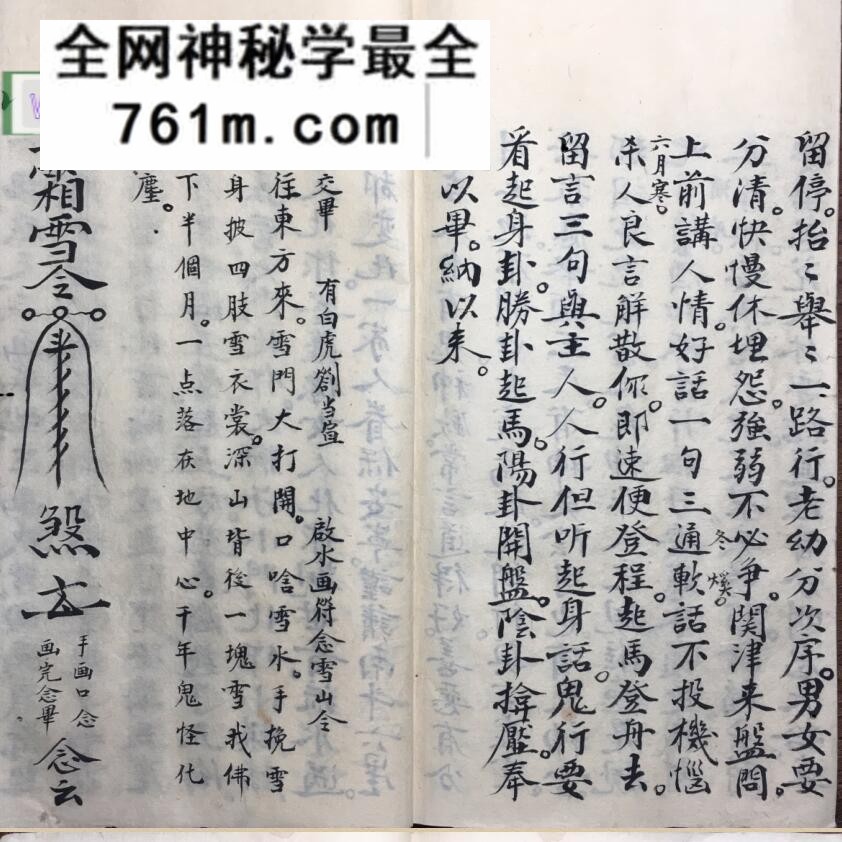 全网神秘学最全
761m.com
留停。抬〻舉〻一路行。老幼分次序。男女要
分清。快慢休埋怨。強弱不必争。関津来盤問。
上前講人情。好話一句三通軟話不投機惱
冬
六月寒。
杀人良言解散你。即速便登程。起馬登舟去。
留言三句與主人。人行但听起身話。鬼行要
看起身卦。勝卦起馬。陽卦開盤。陰卦揜壓。奉
以畢。納以来。
交畢 有白虎劄当宣 啟水画符念雪山令
往東方來。雪門大打開。口唅雪水。手挽雪
身披四肢雪衣裳。深山背後一塊雪我佛
下半個月。一点落在地中心。千年鬼怪化
塵。
霜雪令
煞
手画口念
画完念畢
念云